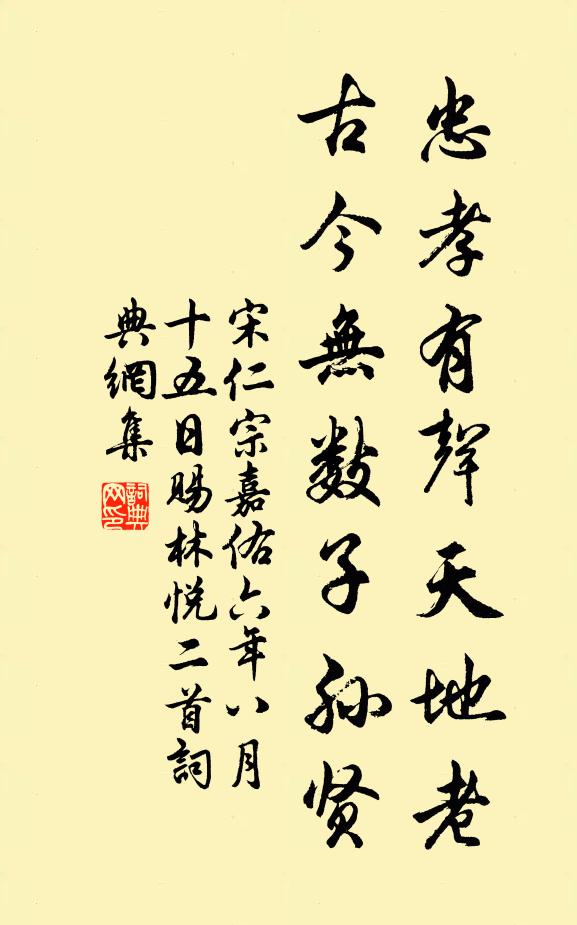 忠孝有聲天地老
古今無数子孫贤
宋仁宗嘉佑六年八月
十五日賜林悦二首詞
典網集
詞典
网印